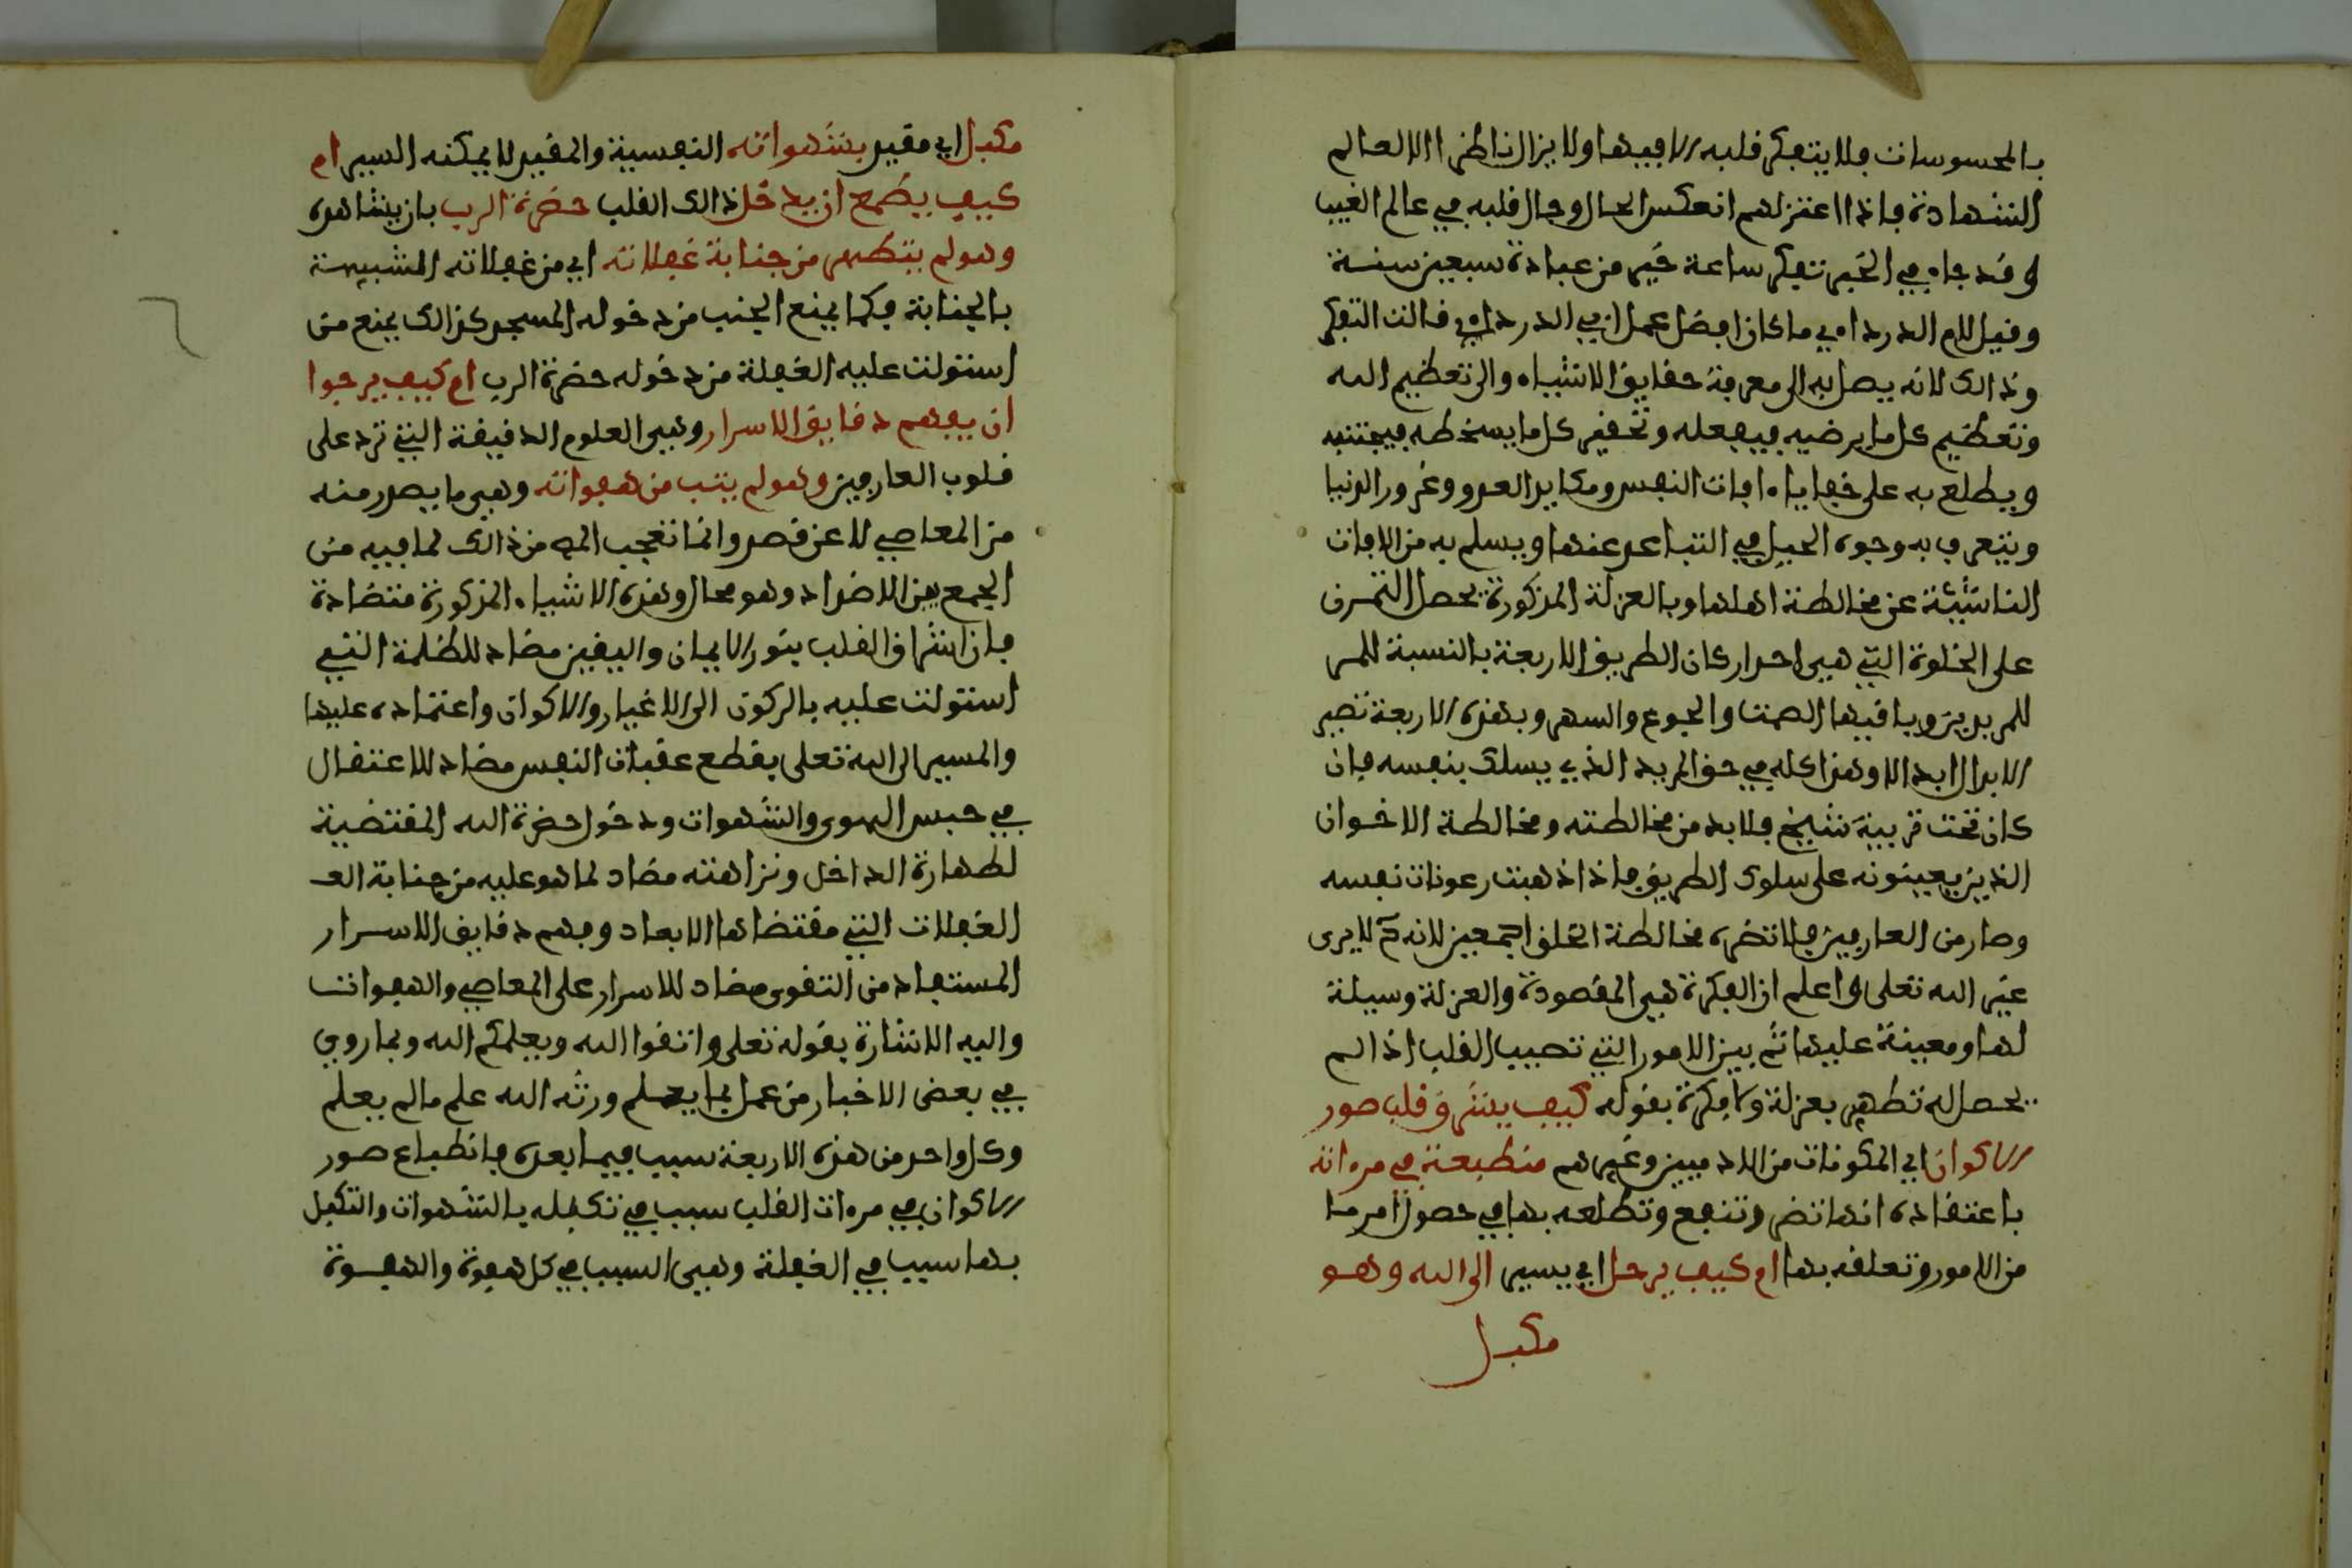 بالمحسوسات فلا يتفكر قلبه الا فيها ولا يزال ناظرا الا لعالم
الشهادة فاذا اعتزلهم انعكس الحال وجال قلبه في عالم الغيب
وقد جاء في الخبر تفكر ساعة خير من عبادة سبعين سنة
وقيل لام الدرداء ما كان افضل عمل ابي الدرداء قالت التفكر
وذالك لانه يصل به الى معرفة حقايق الاشياء والى تعظيم الله
وتعظيم كل ما يرضيه فيفعله وتحقير كل ما يسخطه فيجتنبه
ويطلع به على خفايا ءافات النفس ومكايد العدو وغرور الدنيا
ويتعرف به وجوه الحيل في التباعد عنها ويسلم به من الافات
الناشئة عن مخالطة اهلها وبالعزلة المذكورة يحصل التمرن
على الخلوة التي هي احد اركان الطريق الاربعة بالنسبة للمر
للمريدين وباقيها الصمت والجوع والسهر وبهذه الاربعة تصير
الابدال ابدالا وهذا كله في حق المريد الذي يسلك بنفسه فان
كان تحت تربية شيخ فلابد من مخالطته ومخالطة الاخوان
الذين يعينونه على سلوك الطريق فاذا ذهبت رعونات نفسه
وصار من العارفين فلا تضره مخالطة الخلق اجمعين لانه ح لا يرى
غير الله تعلى واعلم ان الفكرة هي المقصودة والعزلة وسيلة
لها ومعينة عليها ثم بين الامور التي تصيب القلب اذا لم
يحصل له تطهير بعزلة ولا فكرة بقوله كيف يشرق قلب صور
الاكوان اي المكونات من الادميين وغيرهم منطبعة في مرءاته
باعتقاده انها تضر وتنفع وتطلعه بها في حصول امر ما
من الامور وتعلقه بها ام كيف يرحل اي يسير الى الله وهو
مكبل
مكبل اي مقيد بشهواته النفسية والمقيد لا يمكنه السير ام
كيف يطمع ان يدخل ذالك القلب حضرة الرب بان يشاهده
وهو لم يتطهر من جنابة غفلاته اي من غفلاته المشبهة
بالجنابة فكما يمنع الجنب من دخوله المسجد كذالك يمنع من
استولت عليه الغفلة من دخوله حضرة الرب ام كيف يرجوا
ان يفهم دقايق الاسرار وهي العلوم الدقيقة التي ترد على
قلوب العارفين وهو لم يتب من هفواته وهي ما يصدر منه
من المعاصي لا عن قصد وانما تعجب المص من ذالك لما فيه من
الجمع بين الاضداد وهو محال وهذه الاشياء المذكورة متضادة
فان اشراق القلب بنور الايمان واليقين مضاد للظلمة التي
استولت عليه بالركون الى الاغيار والاكوان واعتماده عليها
والمسير الى الله تعلى بقطع عقبات النفس مضاد للاعتقال
في حبس الهوى والشهوات ودخول حضرة الله المقتضية
لطهارة الداخل ونزاهته مضاد لما هو عليه من جنابة الغـ
الغفلات التي مقتضاها الابعاد وفهم دقايق الاسرار
المستفاد من التقوى مضاد للاسرار على المعاصي والهفوات
واليه الاشارة بقوله تعلى واتقوا الله ويعلمكم الله وبما روي
في بعض الاخبار من عمل بما يعلم ورثه الله علم ما لم يعلم
وكل واحد من هذه الاربعة سبب فيما بعده فانطباع صور
الاكوان في مرءات القلب سبب في تكبله بالشهوات والتكبل
بها سبب في الغفلة وهي السبب في كل هفوة والهفوة